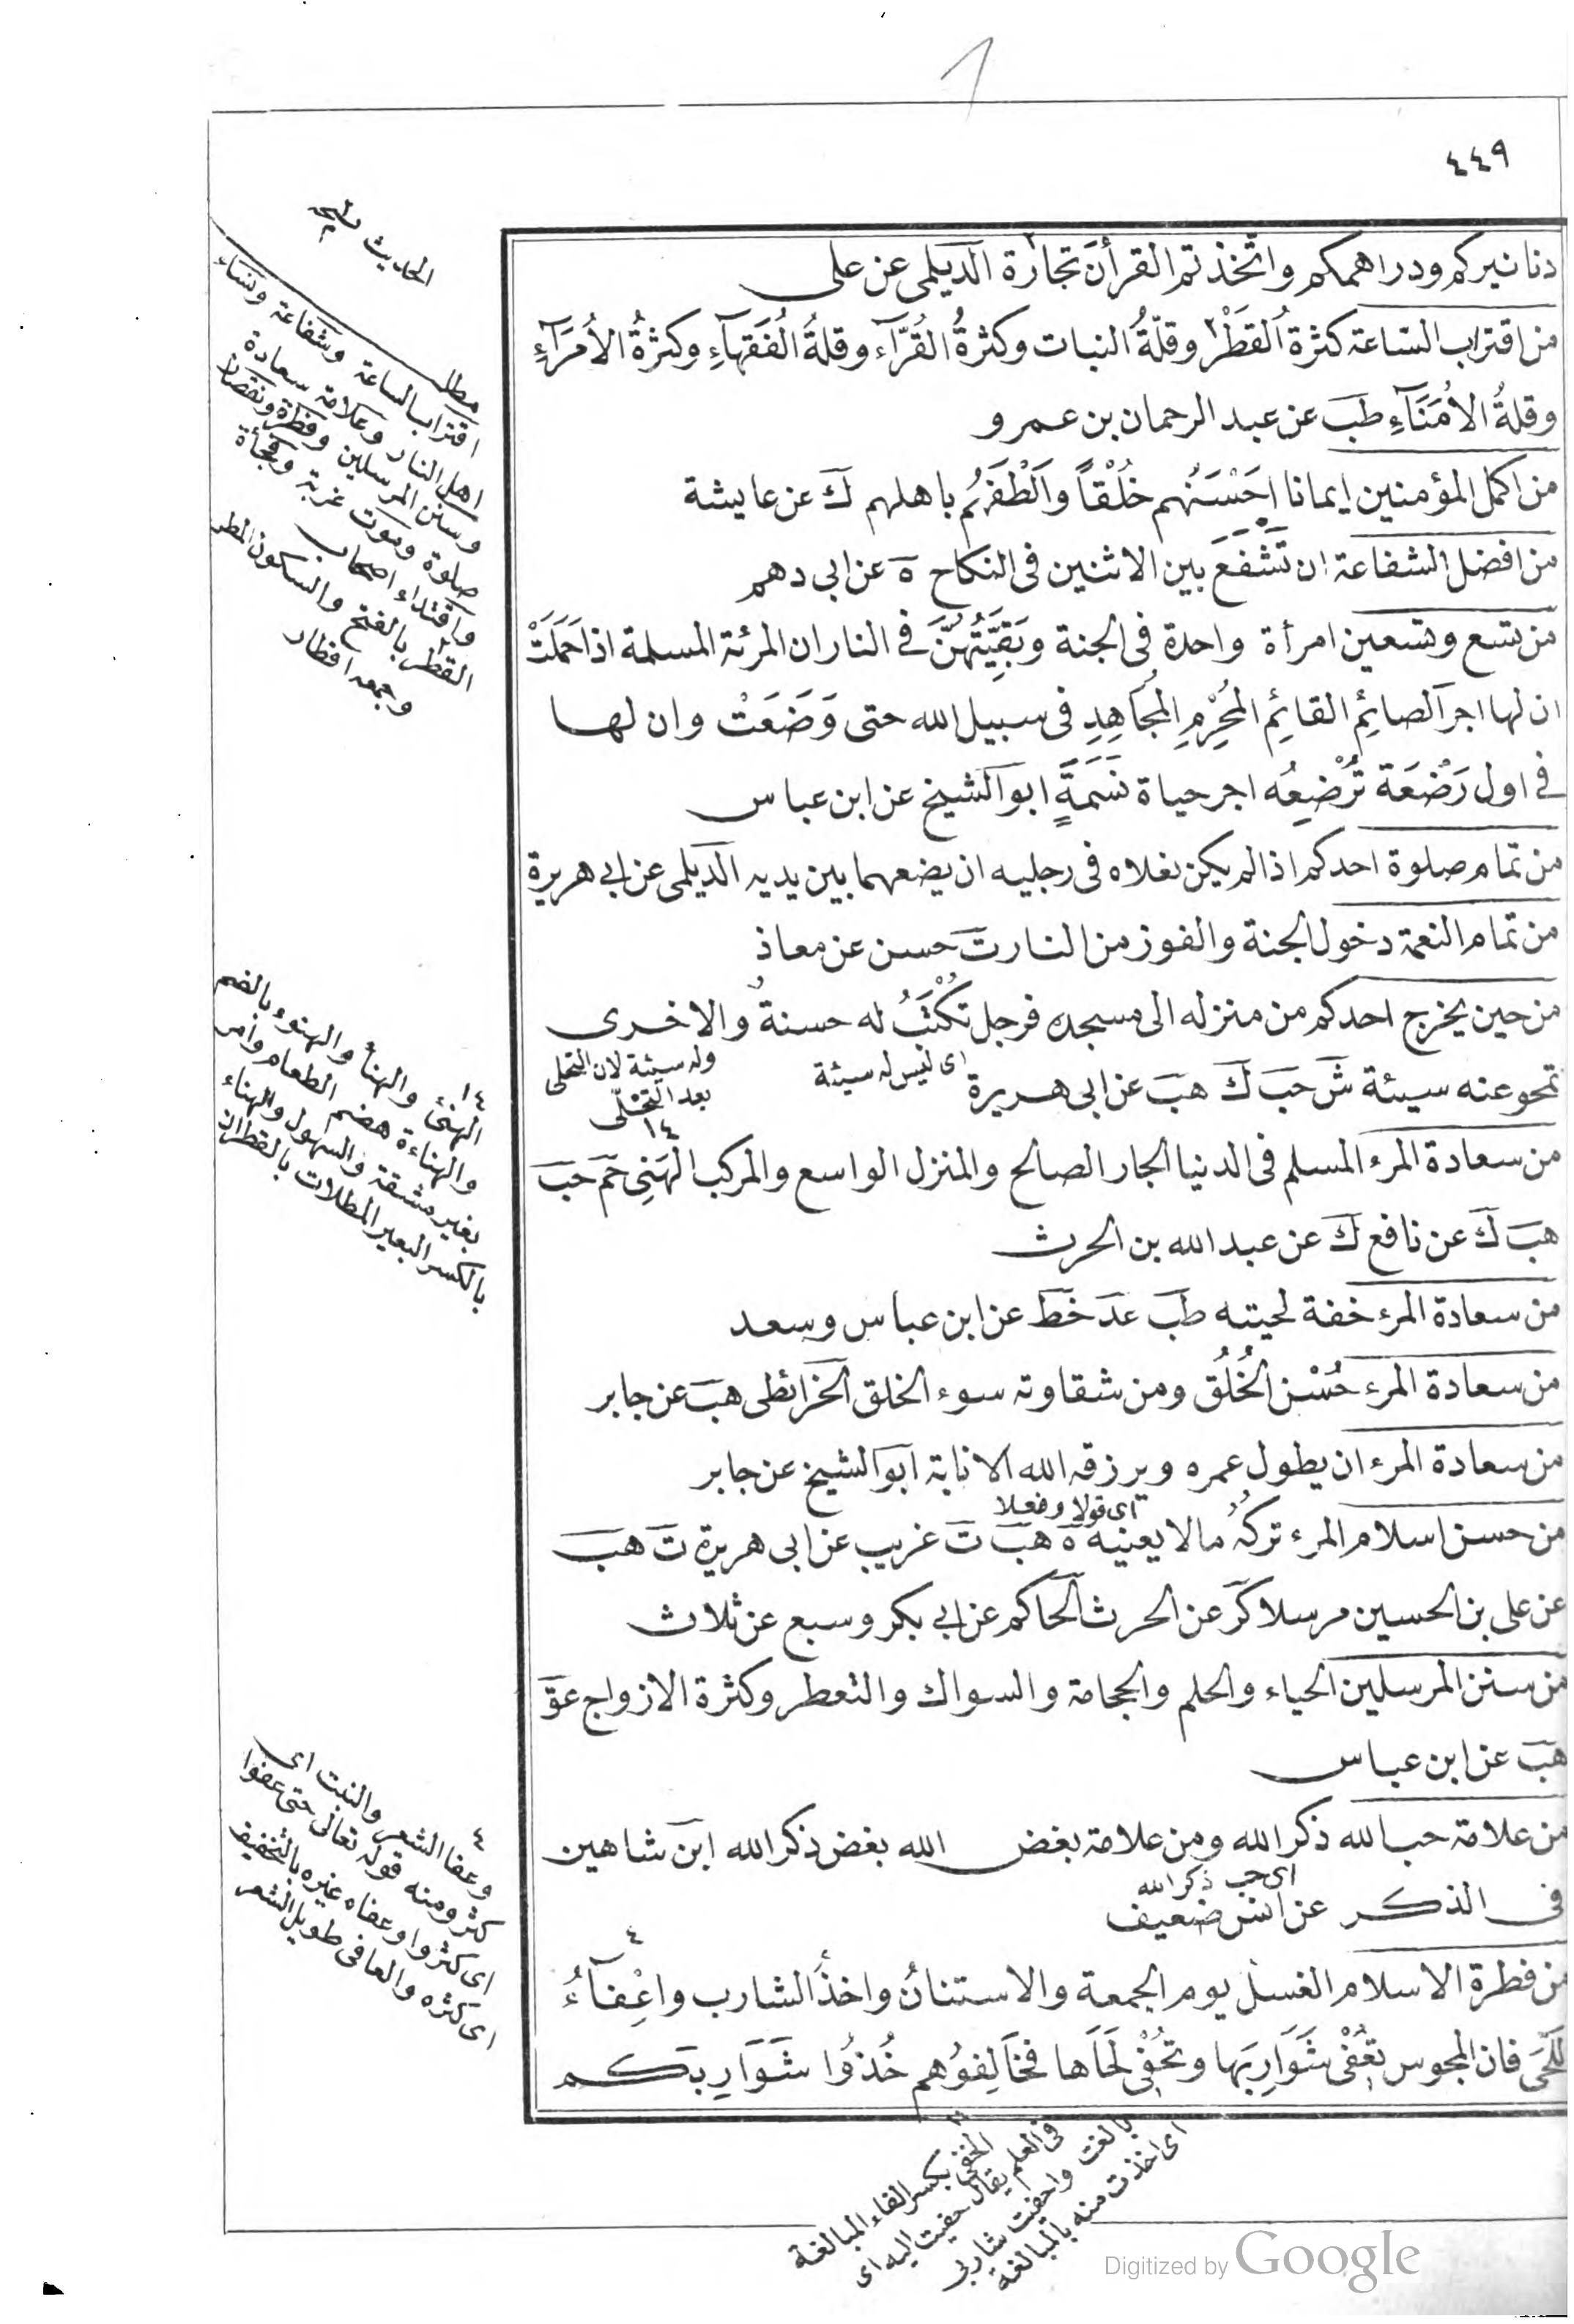 ٤٤٩
دنانيركم ودراهمكم واتخذتم القرأن تجارة الديلمى عن على
من اقتراب الساعة كثرة القَطْر وقلّةُ النبات وكثرةُ القُرّآء وقلةُ الفُقَهآءِ وكثرةُ الأُمَرَآءِ
وقلةُ الأُمَنَآءِ طب عن عبد الرحمان بن عمرو
من اكمل المؤمنين ايمانا احْسَنُهم خُلْقاً واَلْطَفَهُم باهلهم ك عن عايشة
من افضل الشفاعة ان تَشْفَعَ بين الاثنين فى النكاح ه عن ابى دهم
من تسع وتسعين امرأة واحدة فى الجنة وبَقِيَّتُهُنَّ فى النار ان المرئة المسلمة اذا حَمَلَتْ
ان لها اجر الصائِمِ القائِمِ المُحْرِمِ المُجَاهِدِ فى سبيل الله حتى وَضَعَتْ وان لها
فى اول رَضْعَة تُرْضِعُه اجر حياة نَسَمَةٍ ابو الشيخ عن ابن عباس
من تمام صلوة احدكم اذا لم يكن نعلاه فى رجليه ان يضعهما بين يديه الديلمى عن ابى هريرة
من تمام النعمة دخول الجنة والفوز من النار ت حسن عن معاذ
من حين يخرج احدكم من منزله الى مسجده فرجل تُكْتَبُ له حسنةُ والاخرى
تمحو عنه سيئة ش حب ك هب عن ابى هريرة
اى ليس له سيئة
وله سيئة لان التحلى
بعد التخلّى
١٤
من سعادة المرء المسلم فى الدنيا الجار الصالح والمنزل الواسع والمركب الهَنِى حم حب
هب ك عن نافع ك عن عبد الله بن الحرث
من سعادة المرء خفة لحيته طب عد خط عن ابن عباس وسعد
من سعادة المرء حُسْن الخُلُق ومن شقاوته سوء الخلق الخرائطى هب عن جابر
من سعادة المرء ان يطول عمره ويرزقه الله الانابة ابو الشيخ عن جابر
اى قولا وفعلا
من حسن اسلام المرء تركُهُ مالا يعنيه ه هب ت غريب عن ابى هريرة ت هب
عن على بن الحسين مرسلا كر عن الحرث الحاكم عن ابى بكر وسبع عن ثلاث
من سنن المرسلين الحياء والحلم والحجامة والسواك والتعطر وكثرة الازواج عق
هب عن ابن عباس
من علامة حب الله ذكر الله ومن علامة بغض الله بغض ذكر الله ابن شاهين
اى حب ذكر الله
فى الذكر عن انس ضعيف
٤
من فطرة الاسلام الغسل يوم الجمعة والاستنانُ واخذ الشارب واعْفآءُ
للحَّى فان المجوس تُعْفى شَوَارِبَها وتُحْفى لَحَاها فخَالِفُوهم خُذُوا شَوَارِبَكم
مطلب
اقتراب الساعة وشفاعة ونساء
اهل النار وعلامة سعادة
وسنن المرسلين وفطرة ونقصان
صلوة وموت غربة وفجأة
واقتداء اصحاب
القطر بالفتح والسكون المطر
وجمعه اقطار
١٤
الهنئ والهنأ والهنوء بالضم
والهناءة هضم الطعام وامر
بغير مشقة والسهول والهناء
بالكسر البعير المطلات بالقطران
٤
وعفا الشعر والنبت اى
كثر ومنه قوله تعالى حتى عفوا
اى كثروا وعفاه غيره بالتخفيف
اى كثره والعافى طويل الشعر
الحفى بكسر الفاء المبالغة
فى العلم يقال حفيت اليه اى
بالغت واحفيت شاربى
اى اخذت منه بالمبالغة
Digitized by Google